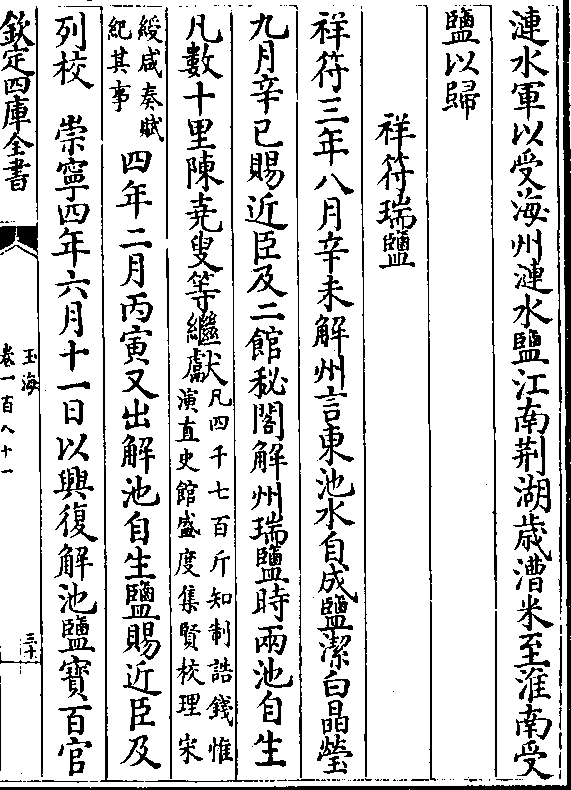 漣水軍以受海州漣水鹽江南荆湖歲漕米至淮南受
鹽以歸
祥符瑞鹽
祥符三年八月辛未解州言東池水自成鹽潔白晶瑩
九月辛巳賜近臣及二館秘閣解州瑞鹽時兩池自生
凡數十里陳堯叟等繼獻凡四千七百斤知制誥錢惟
演直史館盛度集賢校理宋
綬咸奏賦
紀其事
四年二月丙寅又出解池自生鹽賜近臣及
列校 崇寧四年六月十一日以興復解池鹽寶百官
欽定四庫全書
玉海
卷一百八十一
三十